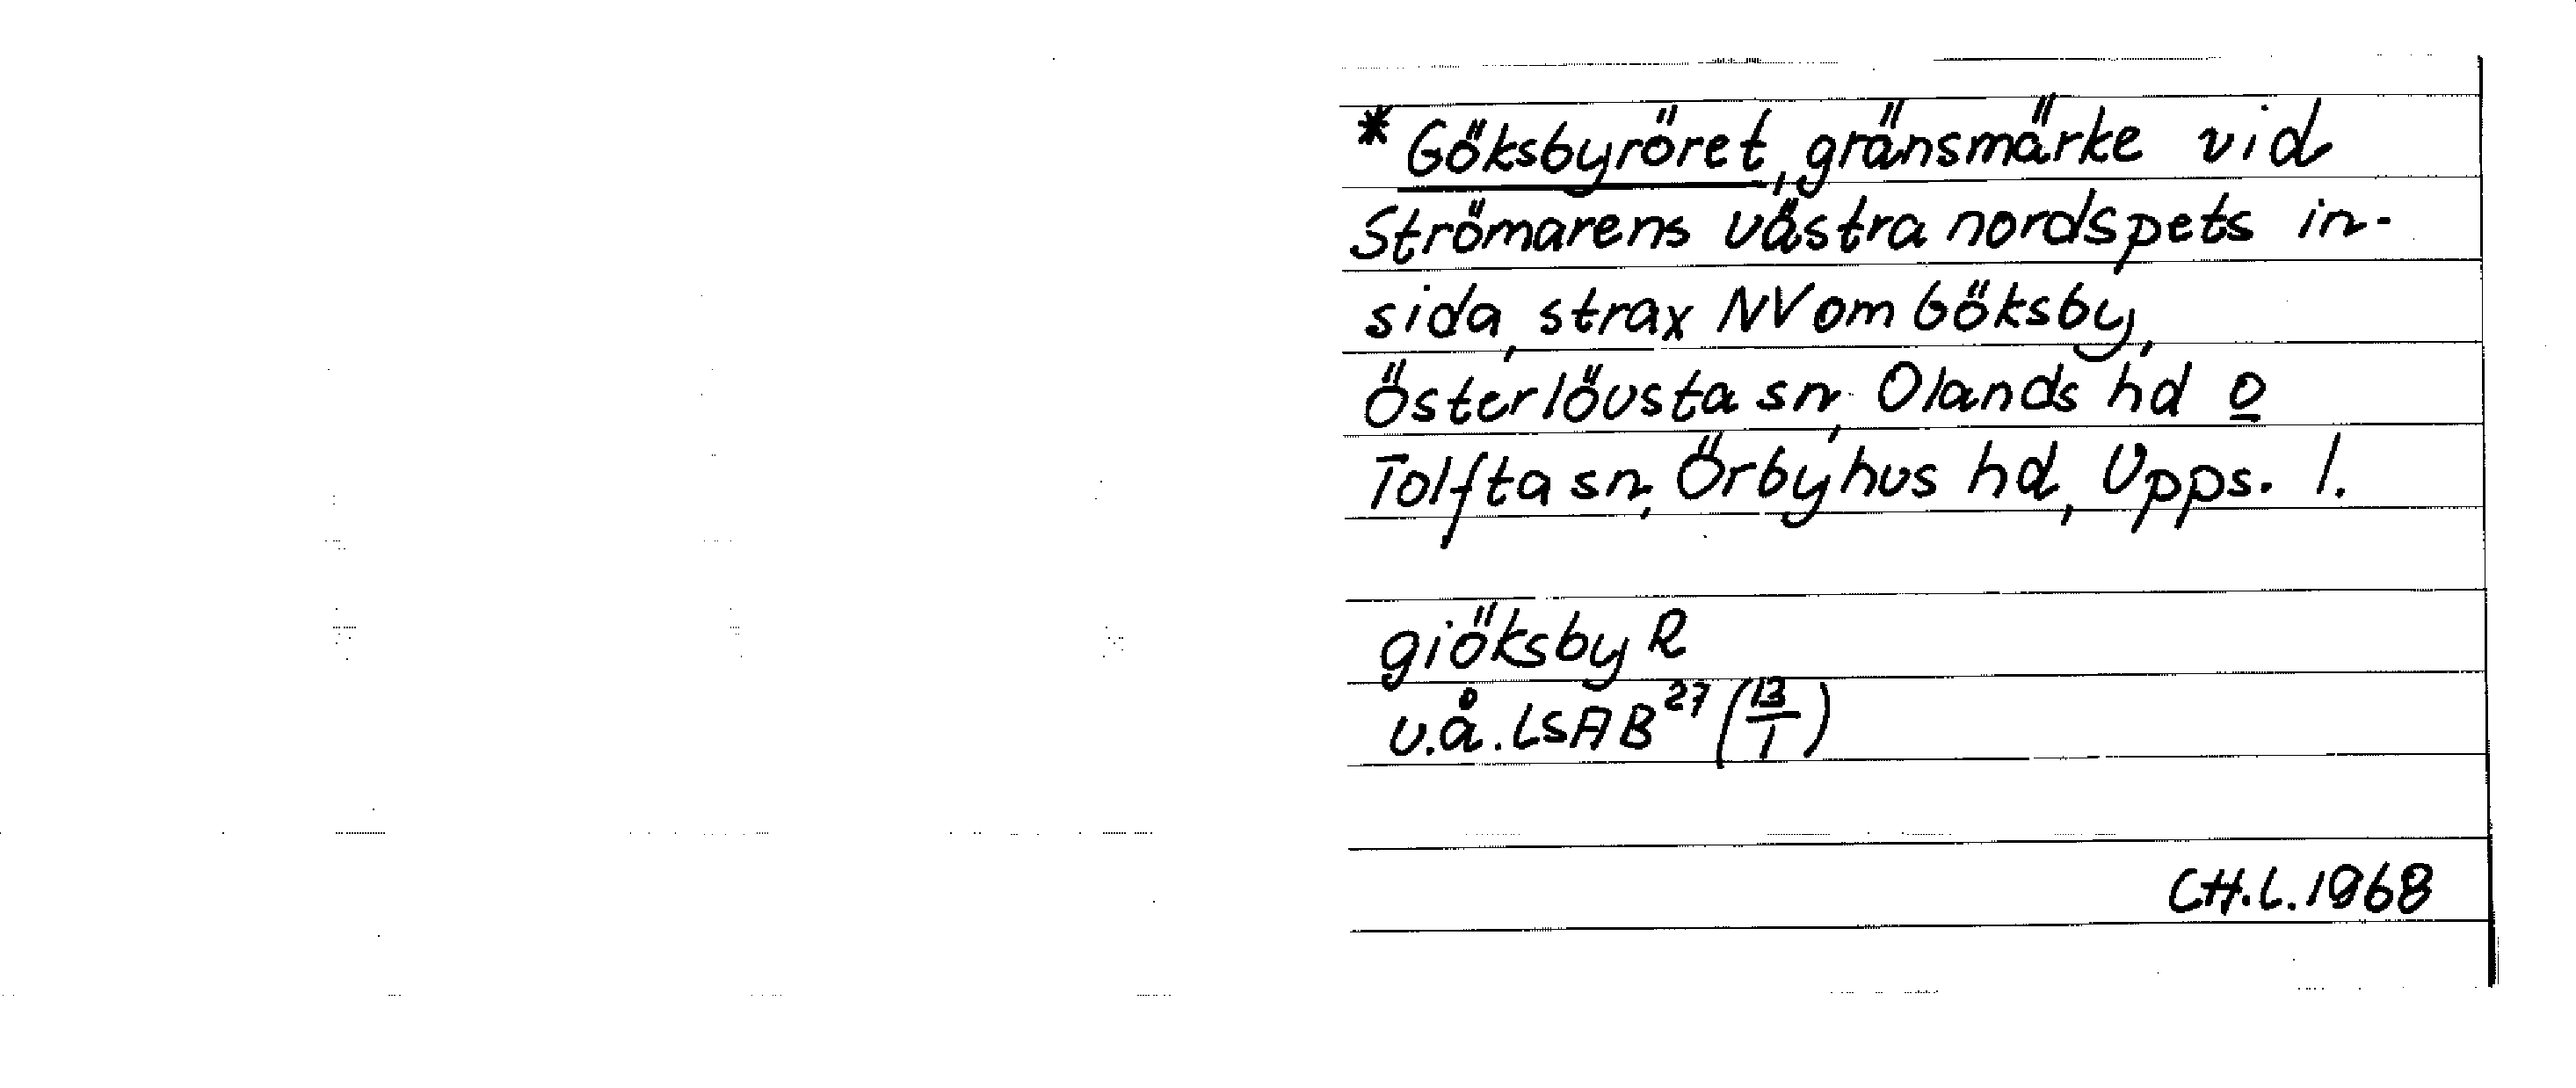 * Göksbyröret, gränsmärke vid
Strömarens västra nordspets in-
sida, strax NV om Göksby,
Österlövsta sn, Olands hd o
Tolfta sn, Örbyhus hd, Upps. l.
giöksby R
u.å. LSA B 27 (13/1)
CH.L. 1968